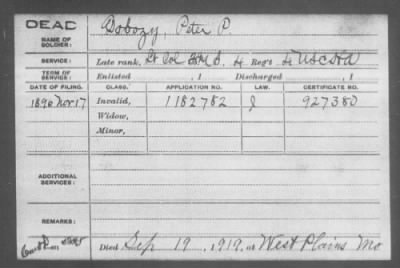 DEAD
NAME OF SOLDIER: Dobozy, Peter P.
SERVICE: Late rank, Lt Col Reg't 4 U.S.C.H.A
TERM OF SERVICE: Enlisted , 1 Discharged , 1
DATE OF FILING. CLASS. APPLICATION NO. LAW. CERTIFICATE NO.
1896 Nov 17 Invalid, 1182782 J 927380
Widow,
Minor,
ADDITIONAL SERVICES:
REMARKS:
Died Sep 19, 1919, at West Plains Mo